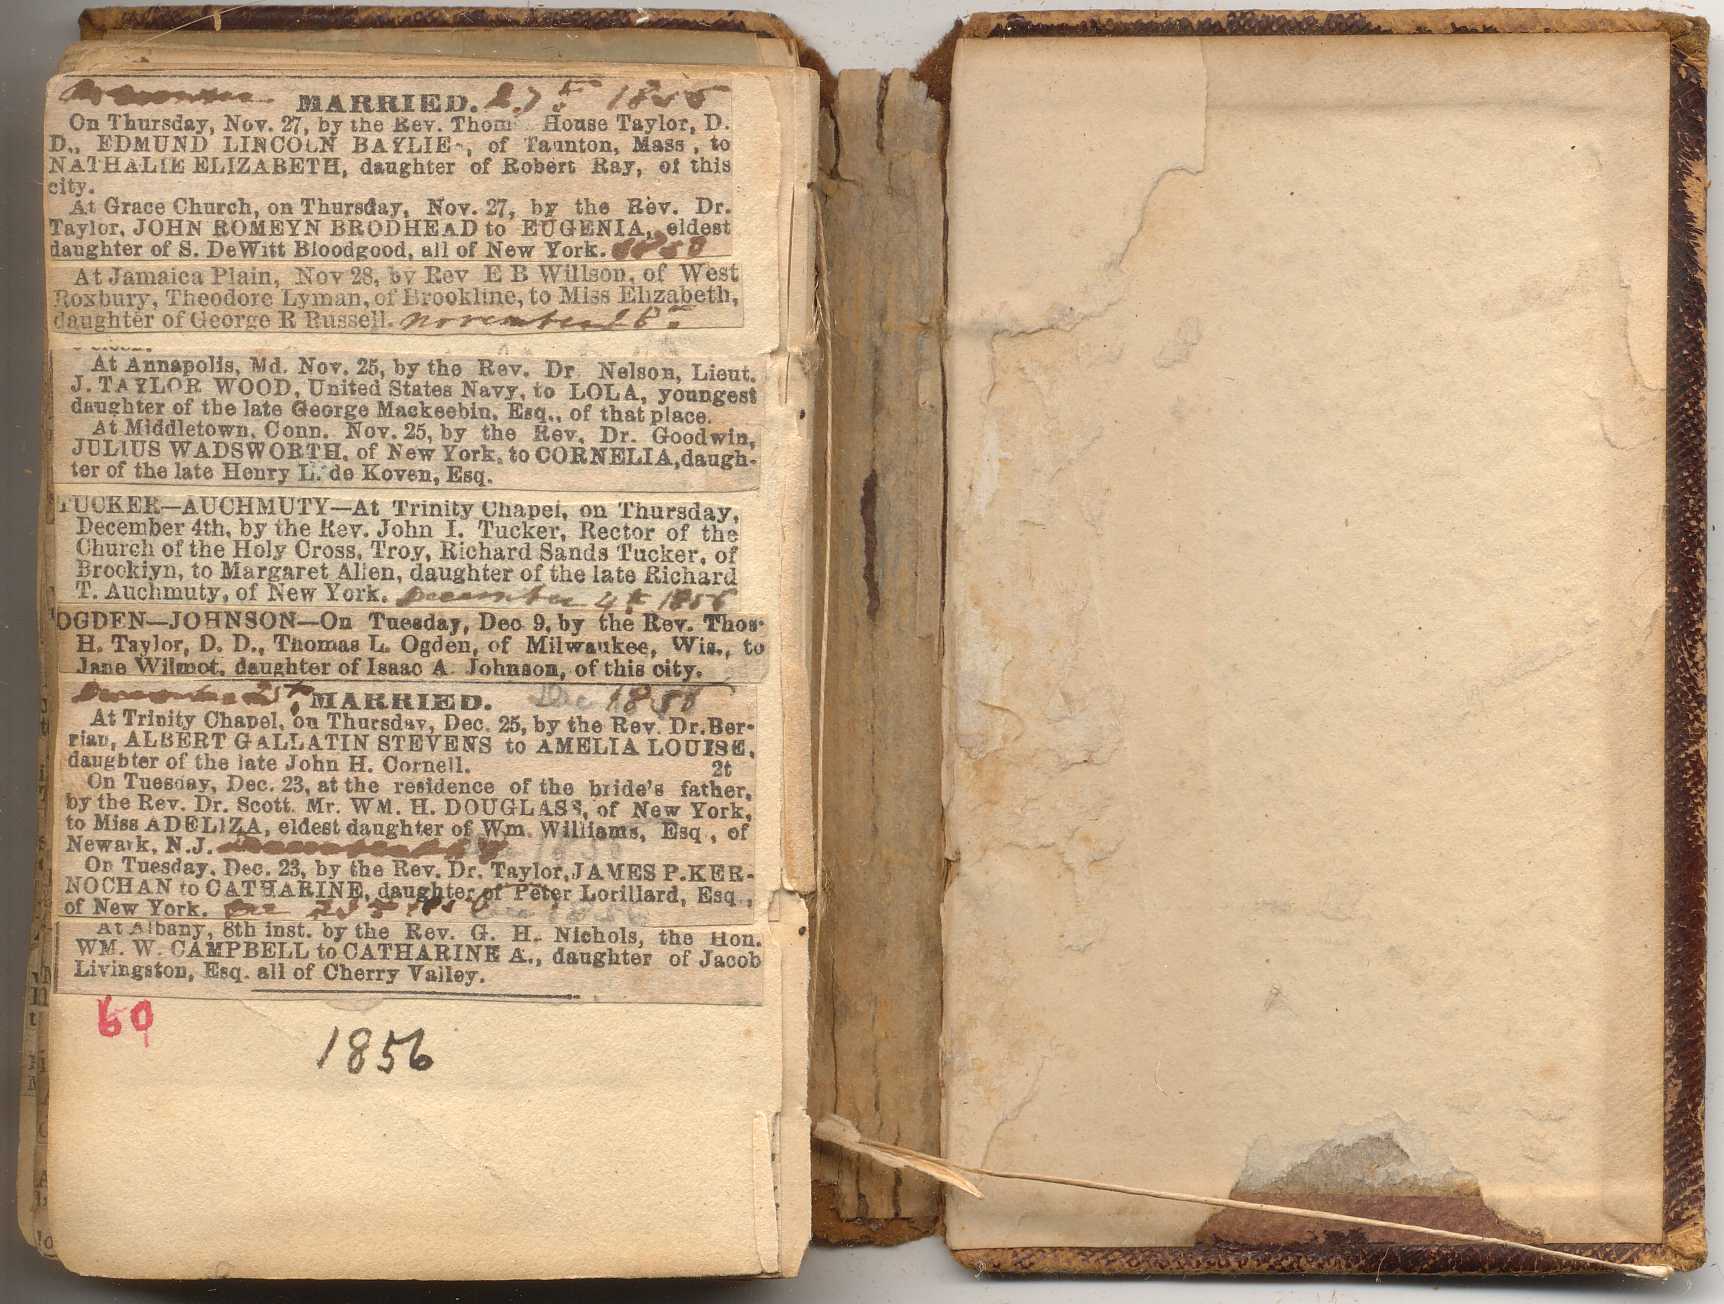 November MARRIED. 27th 1856
On Thursday, Nov. 27, by the Rev. Thom House Taylor, D.
D., EDMUND LINCOLN BAYLIE, of Taunton, Mass, to
NATHALIE ELIZABETH, daughter of Robert Ray, of this
city.
At Grace Church, on Thursday, Nov. 27, by the Rev. Dr.
Taylor, JOHN ROMEYN BRODHEAD to EUGENIA, eldest
daughter of S. DeWitt Bloodgood, all of New York.
At Jamaica Plain, Nov 28, by Rev E B Willson, of West
Roxbury, Theodore Lyman, of Brookline, to Miss Elizabeth,
daughter of George R Russell. november
At Annapolis, Md. Nov. 25, by the Rev. Dr Nelson, Lieut.
J. TAYLOR WOOD, United States Navy, to LOLA, youngest
daughter of the late George Mackeebin, Esq., of that place.
At Middletown, Conn. Nov. 25, by the Rev. Dr. Goodwin,
JULIUS WADSWORTH, of New York, to CORNELIA, daugh-
ter of the late Henry L. de Koven, Esq.
TUCKER—AUCHMUTY—At Trinity Chapel, on Thursday,
December 4th, by the Rev. John I. Tucker, Rector of the
Church of the Holy Cross, Troy, Richard Sands Tucker, of
Brooklyn, to Margaret Allen, daughter of the late Richard
T. Auchmuty, of New York. December 4th 1856
OGDEN—JOHNSON—On Tuesday, Dec 9, by the Rev. Thos.
H. Taylor, D. D., Thomas L. Ogden, of Milwaukee, Wis., to
Jane Wilmot, daughter of Isaac A. Johnson, of this city.
December 25th MARRIED. Dec 1856
At Trinity Chapel, on Thursday, Dec. 25, by the Rev. Dr. Ber-
rian, ALBERT GALLATIN STEVENS to AMELIA LOUISE,
daughter of the late John H. Cornell. 2t
On Tuesday, Dec. 23, at the residence of the bride's father,
by the Rev. Dr. Scott, Mr. WM. H. DOUGLASS, of New York,
to Miss ADELIZA, eldest daughter of Wm. Williams, Esq., of
Newark, N.J.
On Tuesday, Dec. 23, by the Rev. Dr. Taylor, JAMES P. KER-
NOCHAN to CATHARINE, daughter of Peter Lorillard, Esq.,
of New York. Dec 1856
At Albany, 8th inst. by the Rev. G. H. Nichols, the Hon.
WM. W. CAMPBELL to CATHARINE A., daughter of Jacob
Livingston, Esq. all of Cherry Valley.
60
1856